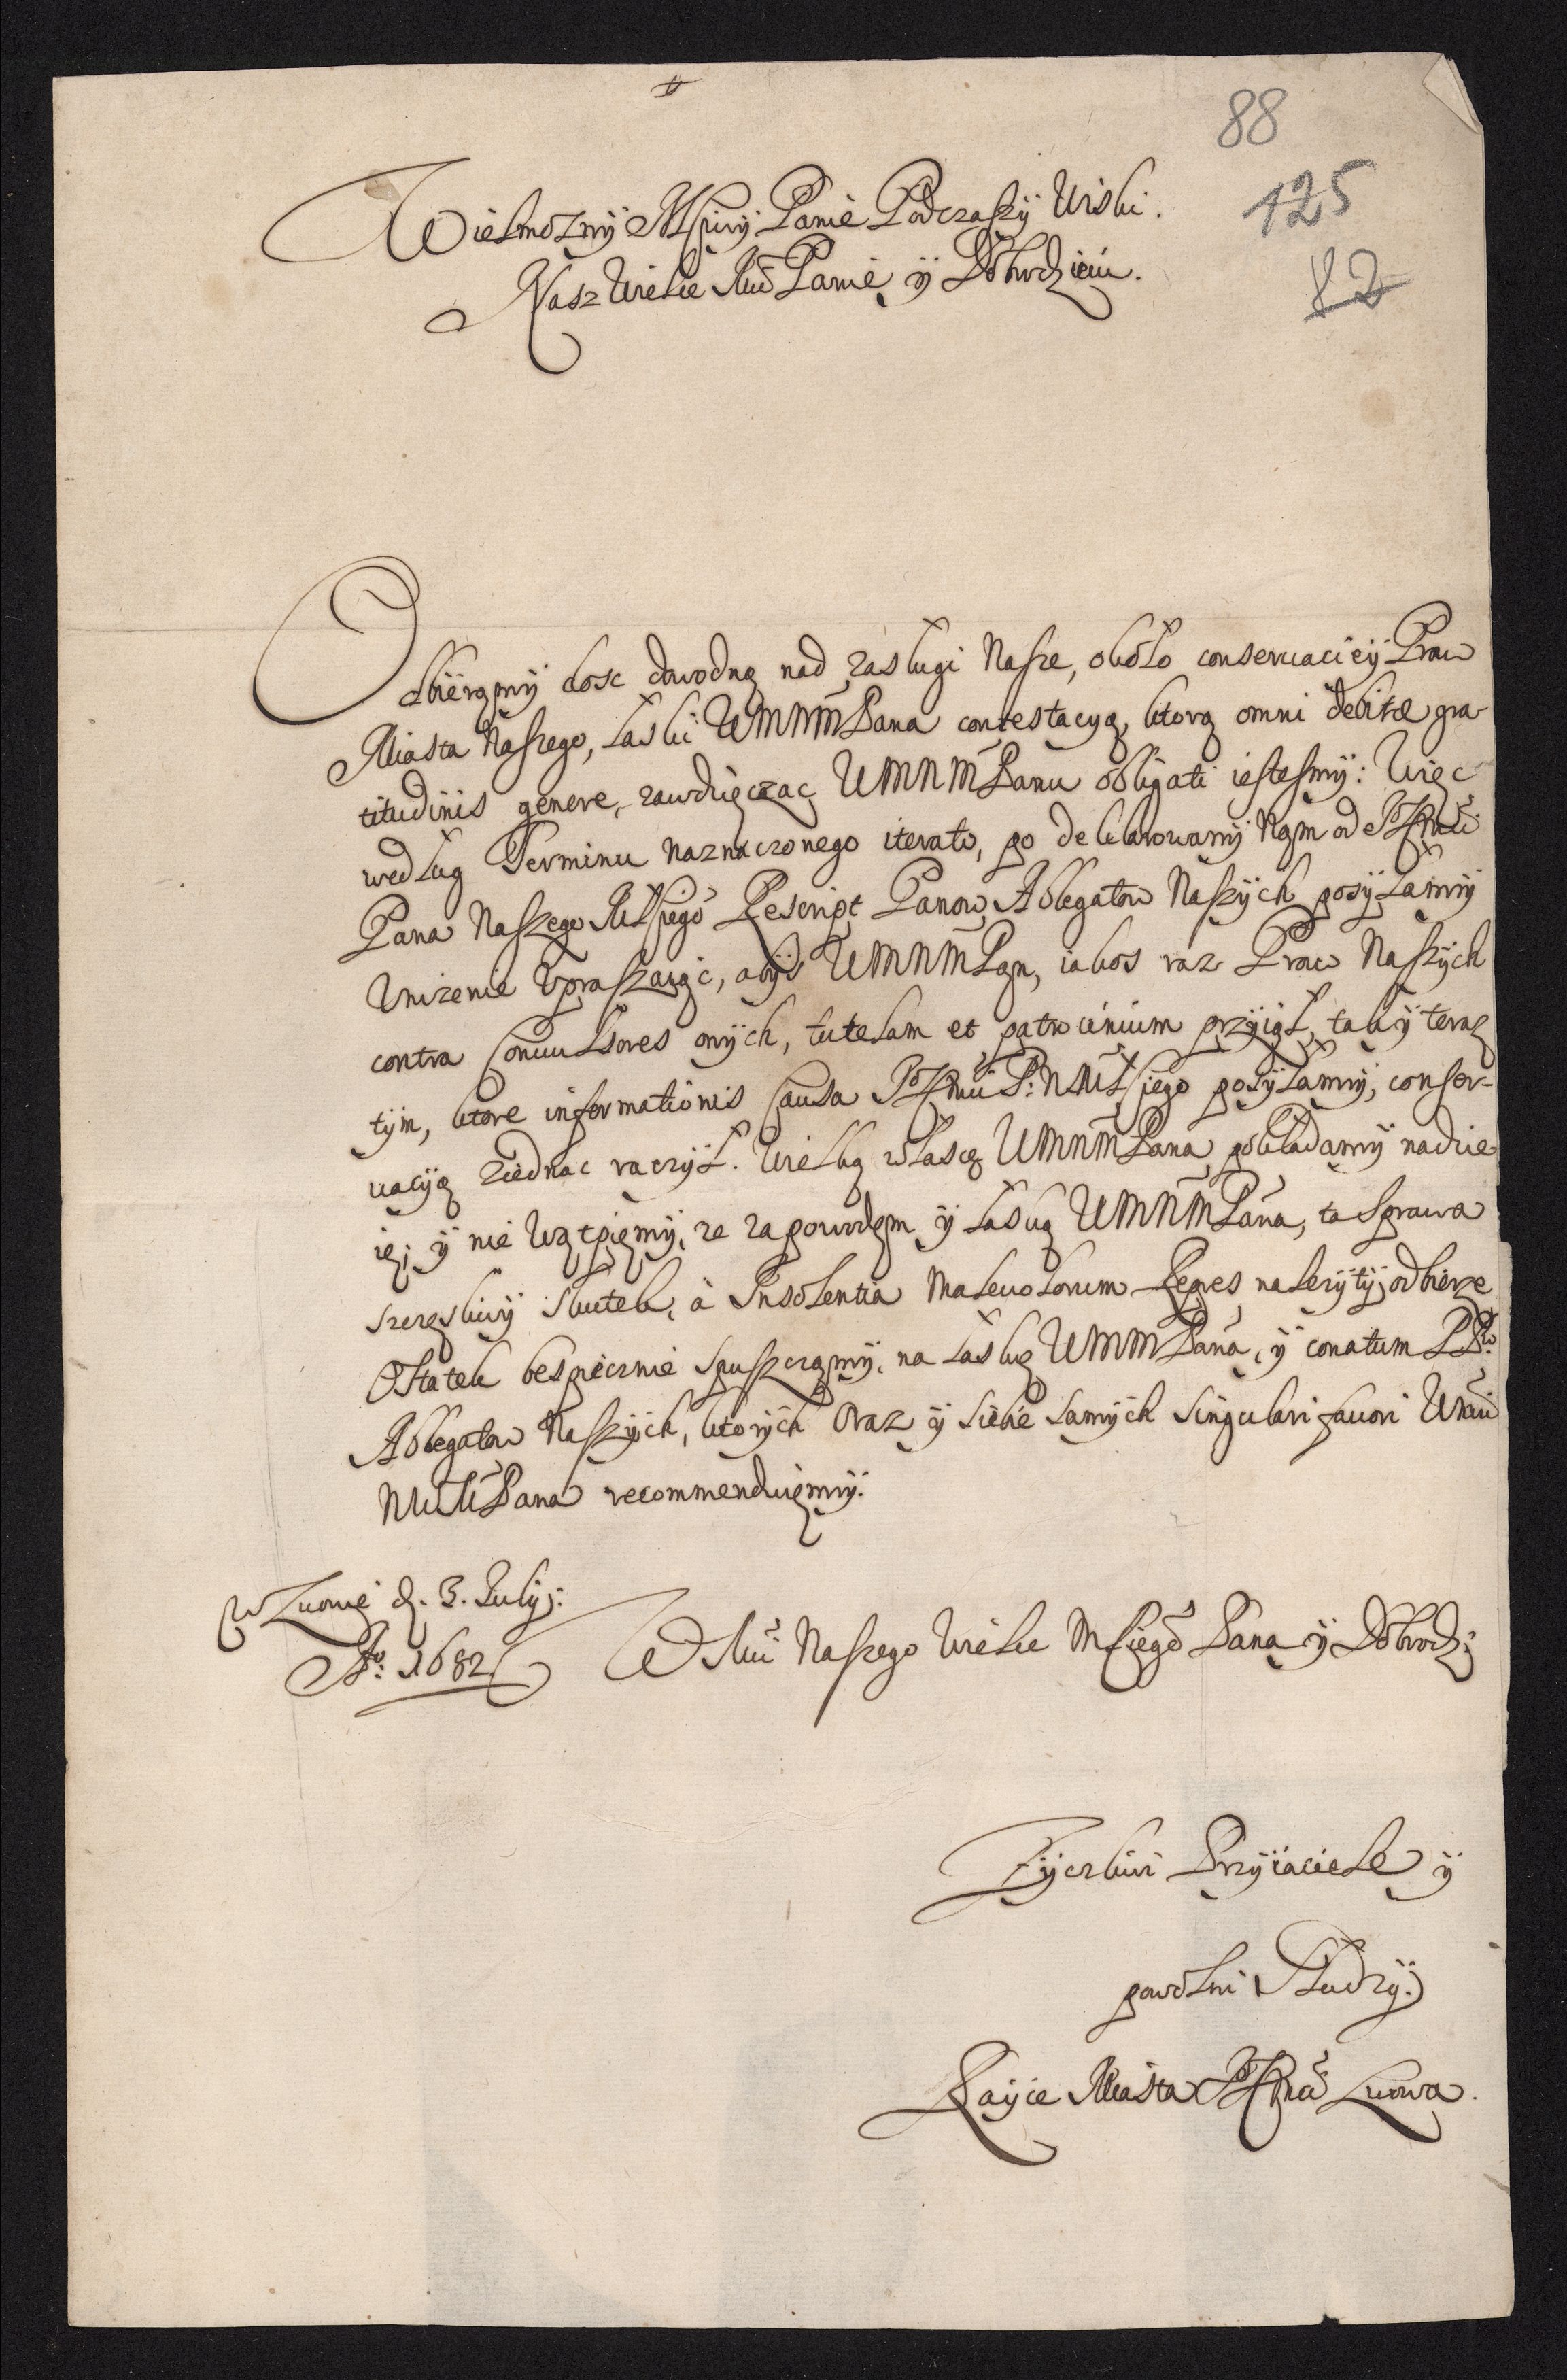 88
125
82
Wielmozny Msciwy Panie Podczaszy
Nasz Wielce Mci Panie y Dobrodzieiu.
Odbieramy dosc dowodną nad zasługi Nasze, około conseruaciey Praw
Miasta Naszego, łaski WMNMPana contestacyą, ktorą omni debitæ gra-
titudinis genere, zawdzięczac WMNMPanu obligati iestesmy: Więc
według Terminu naznaczonego iterato, po deklarowany Nam od JKMci
Pana Naszego Młsciego Rescript Panow Ablegatow Naszych posyłamy
Vnizenie Vpraszaiąc, abys WMNMPan, iakos raz Praw Naszych
contra Conuulsores onych, tutelam et patrocinium przyiął, tak y teraz
tym, ktore informationis Causa JKMci P: N Młsciego posyłamy, conser-
uacyą ziednac raczył. Wielką w łasce WMNMPana, pokładamy nadzie-
ię; y nie wątpiemy, ze za powodem y łaską WMNMPana, ta Sprawa
szczęsliwy skutek, a Insolentia Maleuolorum Repres nalezyty odbierze
Ostatek bespiecznie spuszczamy, na łaskę WMMPana, y conatum PPw
Ablegatow Naszych, ktorych Oraz y siebie samych singulari fauori WMci
NMMPana recommenduiemy.
w Lwowie d. 3. July:
Ao: 1682
WMci Naszego Wielce Msciego Pana y Dobrodz:
Zyczliwi Przyiaciele y
powolni Słudzy.
Rayce Miasta JKMci Lwowa.